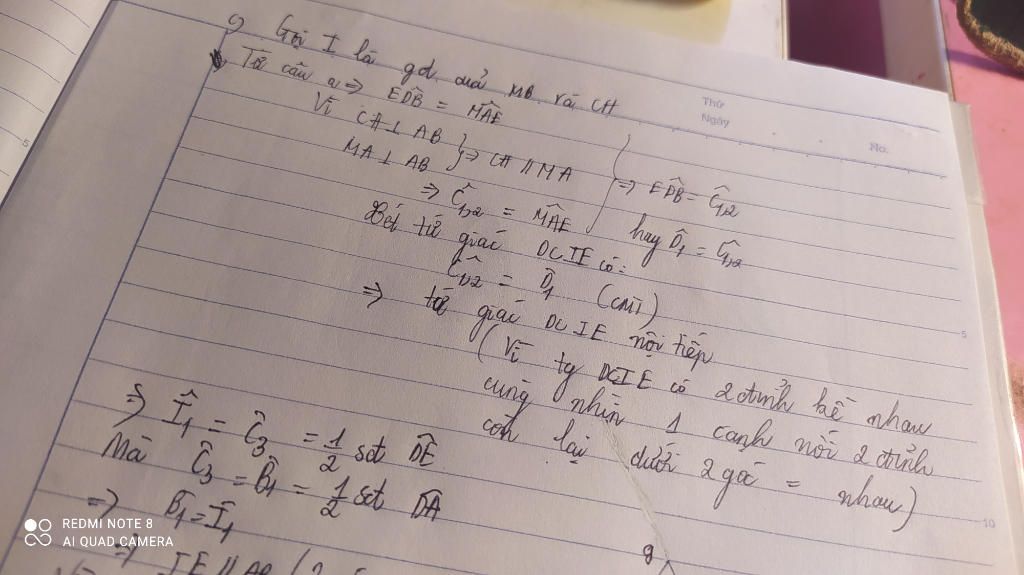 c) Gọi I là gđ quả MB và CH
Từ câu a => EDB̂ = MAÊ
Vì CH ⊥ AB
MA ⊥ AB } => CH // MA
=> Ĉ1,2 = MAÊ
=> EDB̂ = Ĉ1,2
hay D̂1 = Ĉ1,2
Xét tứ giác DCIE có:
Ĉ1,2 = D̂1 (CMT)
=> tứ giác DCIE nội tiếp
(Vì tg DCIE có 2 đỉnh kề nhau
cùng nhìn 1 cạnh nối 2 đỉnh
còn lại dưới 2 góc = nhau)
=> Î1 = Ĉ3 = 1/2 sđt DE
Mà Ĉ3 = B̂1 = 1/2 sđt DA
=> B̂1 = Î1
=> IE // AB
Thứ
Ngày
No.
5
10
5
REDMI NOTE 8
AI QUAD CAMERA